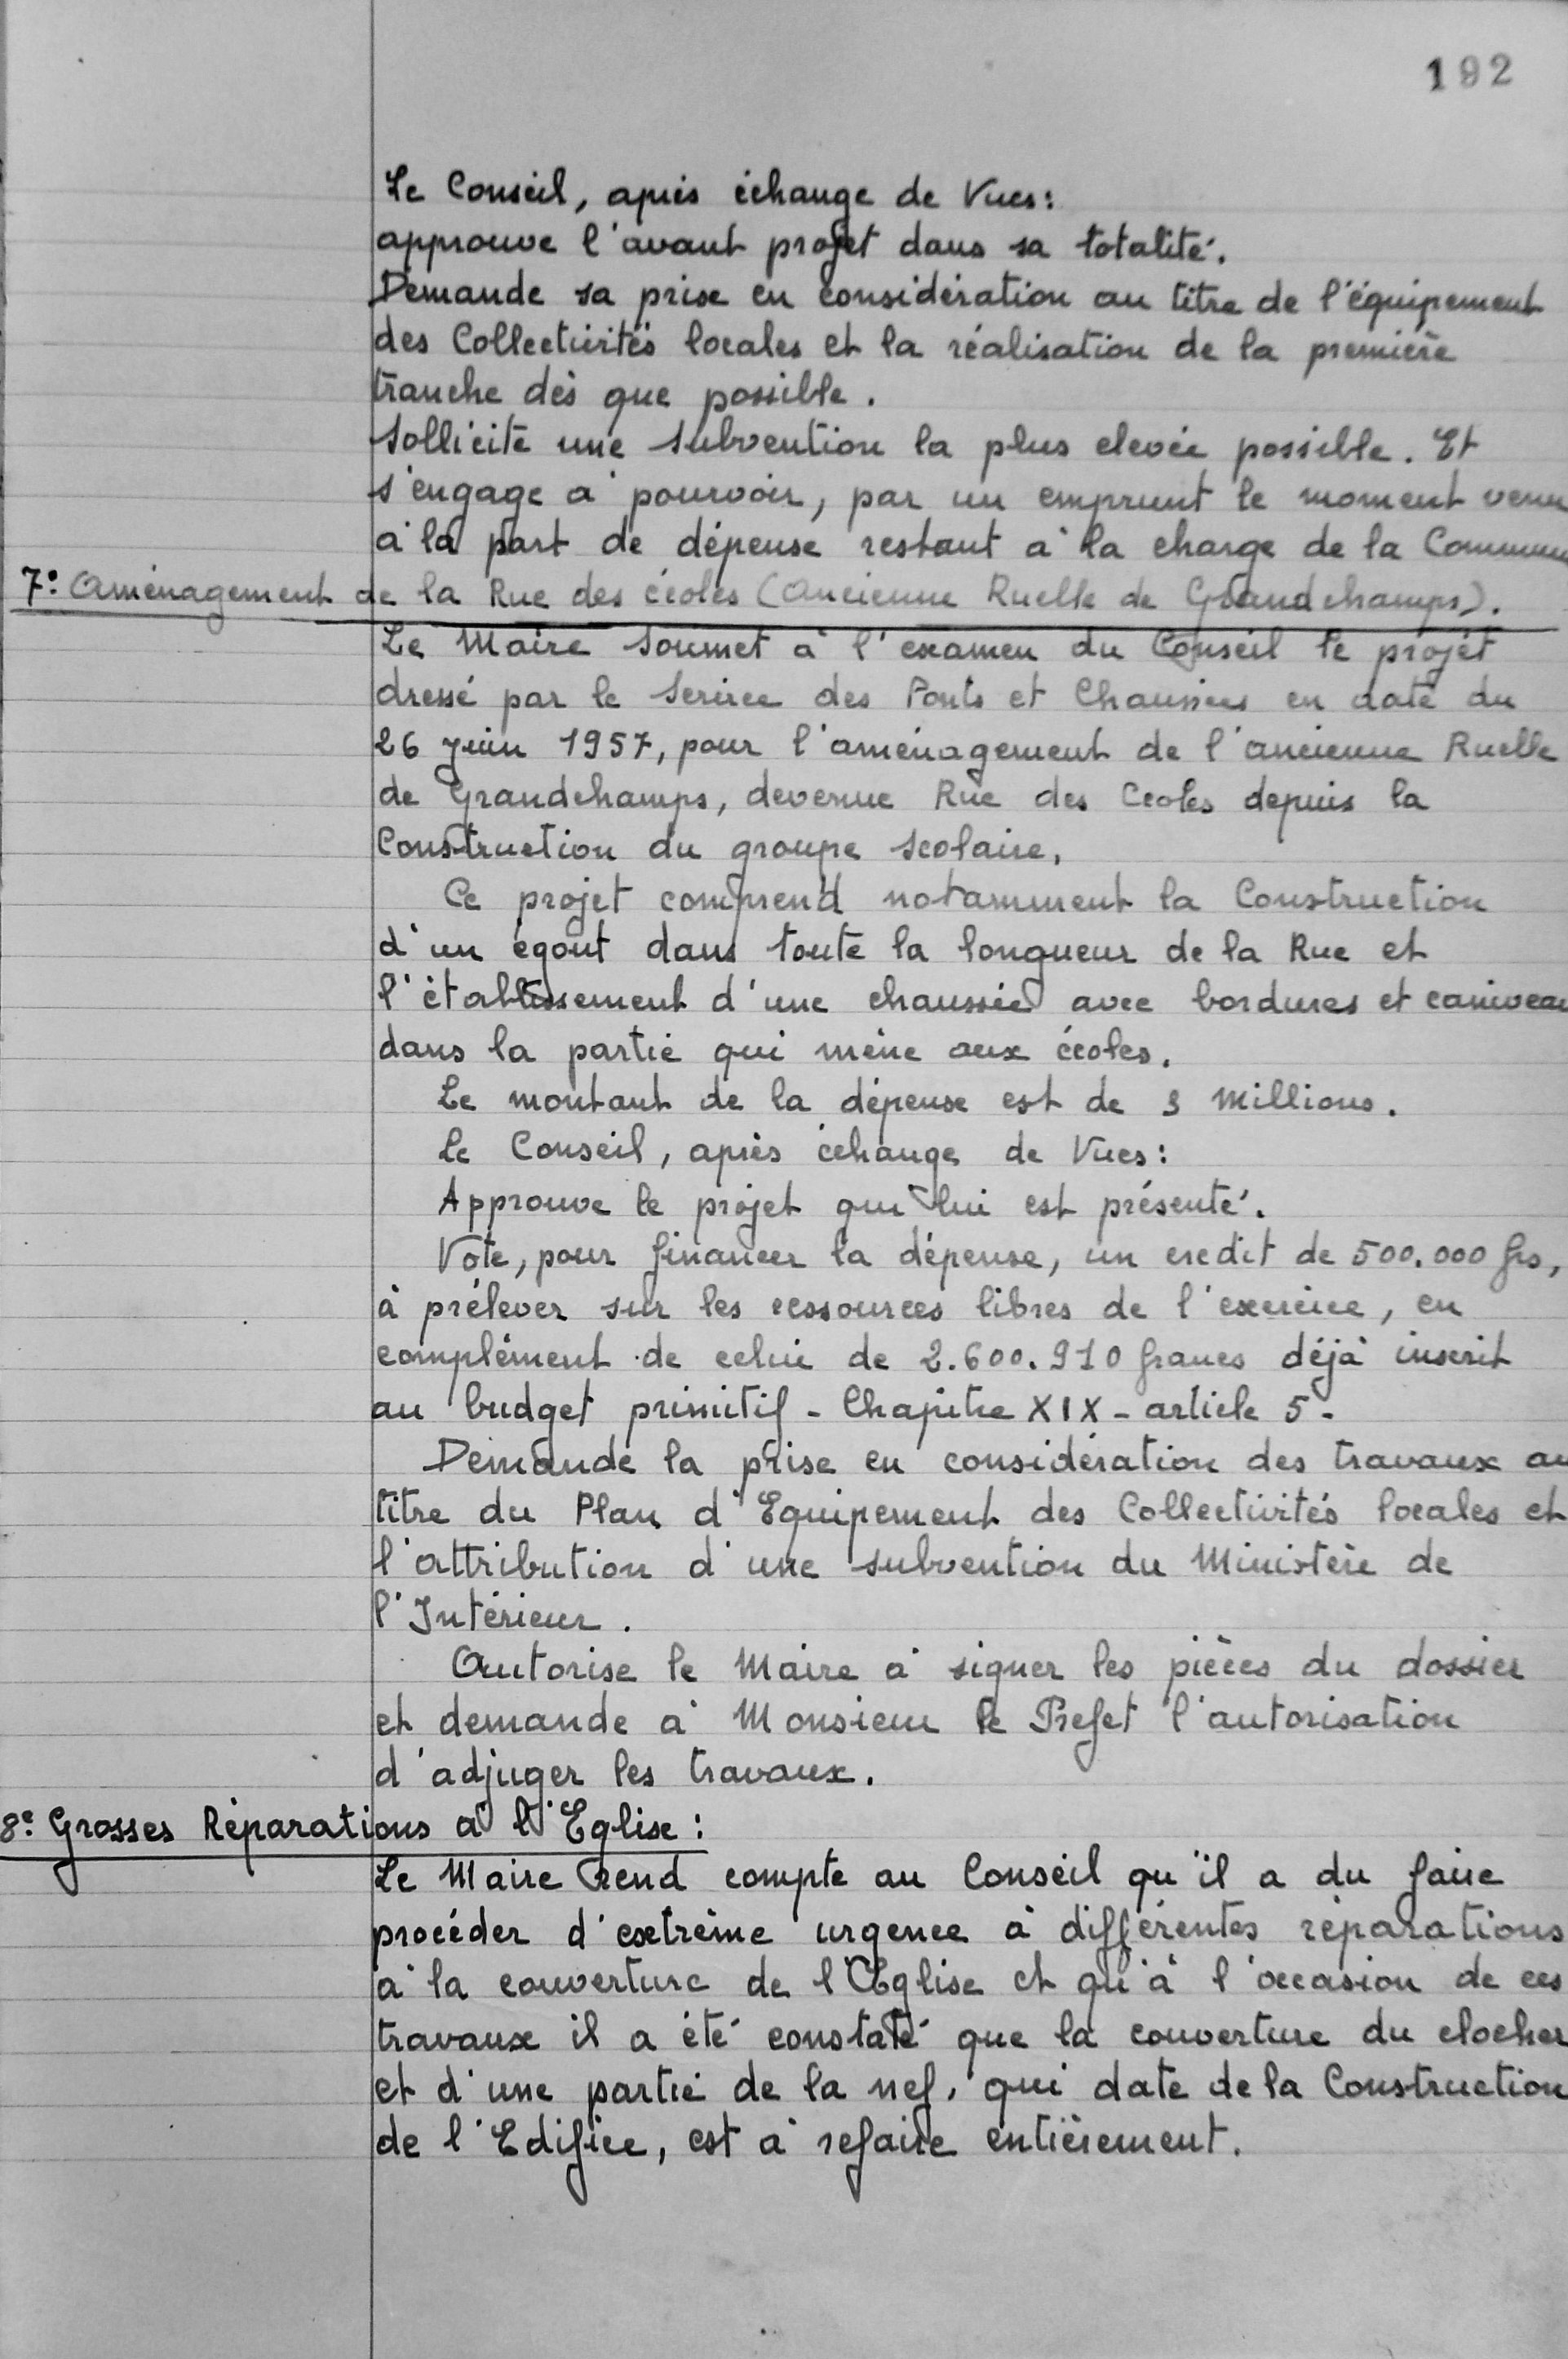 192
Le Conseil, après échange de Vues:
approuve l'avant projet dans sa totalité.
Demande sa prise en considération au titre de l'équipement
des Collectivités locales et la réalisation de la première
tranche dès que possible.
Sollicite une subvention la plus elevée possible. Et
s'engage à pourvoir, par un emprunt le moment venu
à la part de dépense restant à la charge de la Commune
7º: Aménagement de la Rue des écoles (Ancienne Ruelle de Grandchamps).
Le Maire soumet à l'examen du Conseil le projet
dressé par le Service des Ponts et Chaussées en date du
26 Juin 1957, pour l'aménagement de l'ancienne Ruelle
de Grandchamps, devenue Rue des Ecoles depuis la
Construction du groupe scolaire.
Ce projet comprend notamment la Construction
d'un égout dans toute la longueur de la Rue et
l'établissement d'une chaussée avec bordures et caniveau
dans la partie qui mène aux écoles.
Le montant de la dépense est de 3 Millions.
Le Conseil, après échange de Vues:
Approuve le projet qui lui est présenté.
Vote, pour financer la dépense, un crédit de 500.000 frs,
à prélever sur les ressources libres de l'exercice, en
complément de celui de 2.600.910 francs déjà inscrit
au budget primitif - Chapitre XIX - article 5 -
Demande la prise en considération des travaux au
titre du Plan d'Equipement des Collectivités locales et
l'attribution d'une subvention du Ministère de
l'Intérieur.
Autorise le Maire à signer les pièces du dossier
et demande à Monsieur le Prefet l'autorisation
d'adjuger les travaux.
8º: Grosses Réparations à l'Eglise:
Le Maire rend compte au Conseil qu'il a du faire
procéder d'extrême urgence à différentes réparations
à la couverture de l'Eglise et qu'à l'occasion de ces
travaux il a été constaté que la couverture du clocher
et d'une partie de la nef, qui date de la Construction
de l'Edifice, est à refaire entièrement.